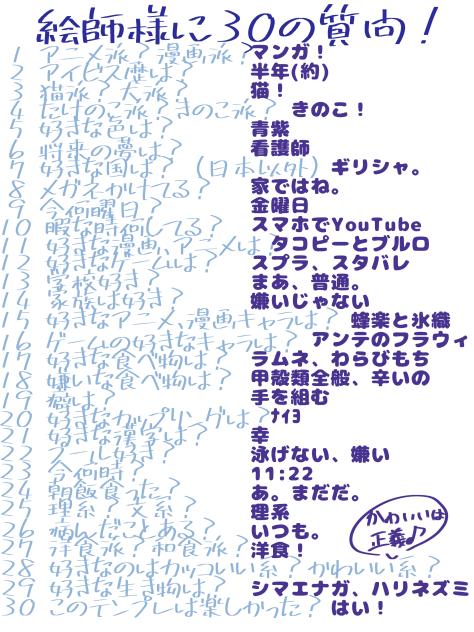 絵師様に30の質問！
1 アニメ派？漫画派？マンガ！
2 アイビス歴は？ 半年(約)
3 猫派？犬派？ 猫！
4 たけのこ派？きのこ派？ きのこ！
5 好きな色は？ 青紫
6 将来の夢は？ 看護師
7 好きな国は？（日本以外）ギリシャ。
8 メガネかけてる？ 家ではね。
9 今何曜日？ 金曜日
10 暇な時何してる？ スマホでYouTube
11 好きな漫画、アニメは？タコピーとブルロ
12 好きなゲームは？ スプラ、スタバレ
13 学校好き？ まあ、普通。
14 家族は好き？ 嫌いじゃない
15 好きなアニメ、漫画キャラは？ 蜂楽と氷織
16 ゲームの好きなキャラは？ アンテのフラウィ
17 好きな食べ物は？ ラムネ、わらびもち
18 嫌いな食べ物は？ 甲殻類全般、辛いの
19 癖は？ 手を組む
20 好きなカップリングは？ﾅｲﾖ
21 好きな漢字は？ 幸
22 プール好き？ 泳げない、嫌い
23 今何時？ 11:22
24 朝飯食った？ あ。まだだ。
25 理系？文系？ 理系
26 病んだことある？ いつも。
27 洋食派？和食派？ 洋食！
28 好きなのはカッコいい系？かわいい系？
かわいいは
正義♪
29 好きな生き物は？ シマエナガ、ハリネズミ
30 このテンプレは楽しかった？ はい！